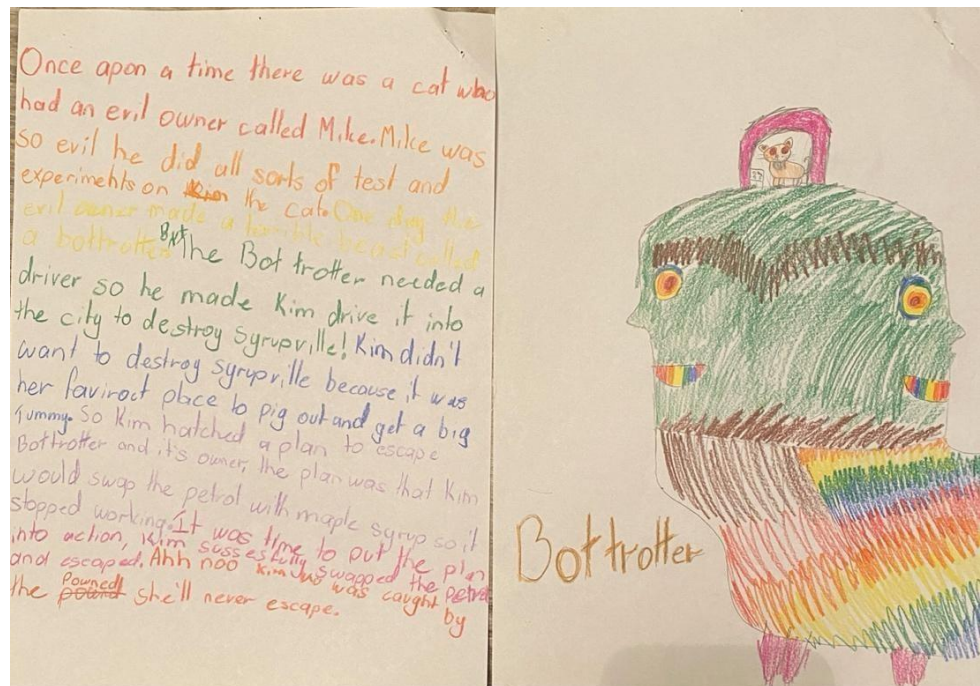 Once apon a time there was a cat who
had an evil owner called Mike. Mike was
so evil he did all sorts of test and
experiments on the cat. One day the
evil owner made a terrible beast called
a bottrotter But the Bot trotter needed a
driver so he made Kim drive it into
the city to destroy syrupville! Kim didn't
want to destroy syrupville because it was
her faviroct place to pig out and get a big
tummy. So Kim hatched a plan to escape
Bottrotter and it's owner, the plan was that Kim
would swap the petrol with maple syrup so it
stopped working. It was time to put the plan
into action, Kim sussesfully swapped the petrol
and escaped. Ahh noo Kim was caught by
the Powned she'll never escape.
Bottrotter